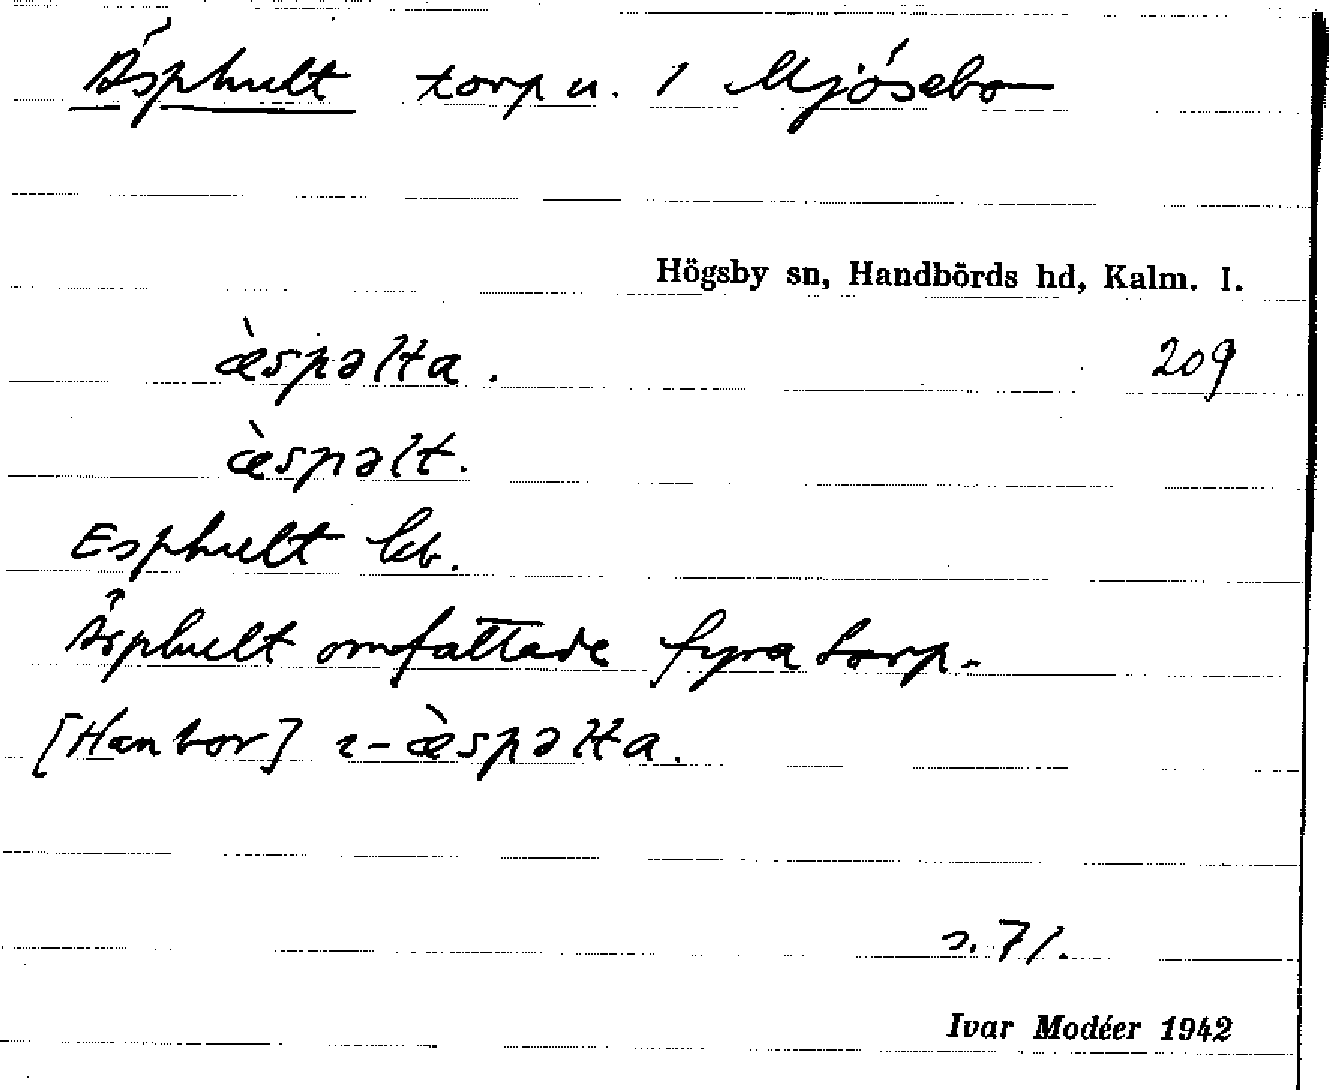 Äsphult torp u. 1 Mjösebo
Högsby sn, Handbörds hd, Kalm. l.
æ̀spəlta. 209
æ̀spəlt.
Esphult kb.
Äsphult omfattade fyra torp.
[Hanbor] ɩ-æ̀spəlta.
s. 71.
Ivar Modéer 1942